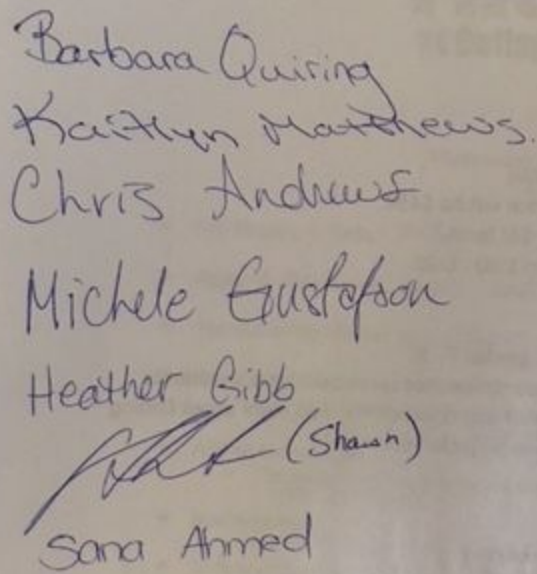 Barbara Quiring
Kaitlyn Matthews.
Chris Andrews
Michele Gustafson
Heather Gibb
(Shawn)
Sana Ahmed